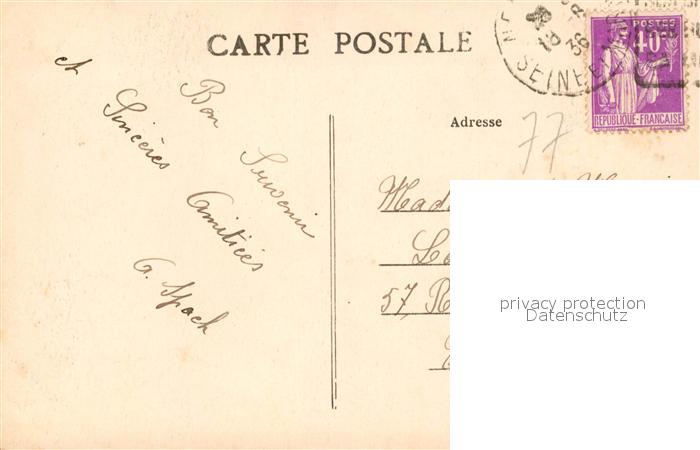 CARTE POSTALE
SEINE
36
POSTES
40c
REPUBLIQUE-FRANÇAISE
Adresse
77
Bon Souvenir
et Sincères Amitiées
G. Spach
57, R
privacy protection
Datenschutz